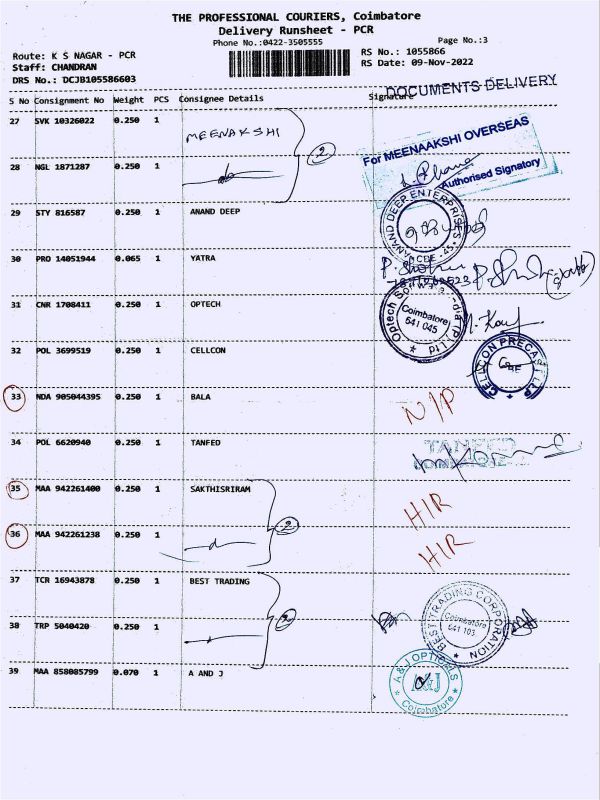 THE PROFESSIONAL COURIERS, Coimbatore
Delivery Runsheet - PCR
Phone No.:0422-3505555
Page No.:3
Route: K S NAGAR - PCR
RS No.: 1055866
Staff: CHANDRAN
RS Date: 09-Nov-2022
DRS No.: DCJB105586603
DOCUMENTS DELIVERY
S No Consignment No Weight PCS Consignee Details Signature
27 SVK 10326022 0.250 1 MEENAKSHI
2
For MEENAAKSHI OVERSEAS
Authorised Signatory
28 NGL 1871287 0.250 1
29 STY 816587 0.250 1 ANAND DEEP
ANAND DEEP ENTERPRISES
CBE - 45
30 PRO 14051944 0.065 1 YATRA
31 CNR 1708411 0.250 1 OPTECH
Coimbatore
641 045
32 POL 3699519 0.250 1 CELLCON
CELLCON PRECAST LLP
CBE
33 NDA 905044395 0.250 1 BALA N/P
34 POL 6620940 0.250 1 TANFED
TANFED
35 MAA 942261400 0.250 1 SAKTHISRIRAM H/R
2
36 MAA 942261238 0.250 1 H/R
37 TCR 16943878 0.250 1 BEST TRADING
2
BEST TRADING CORPORATION
Coimbatore
641 103
38 TRP 5040420 0.250 1
39 MAA 858085799 0.070 1 A AND J
A & J OPTICALS
A&J
Coimbatore